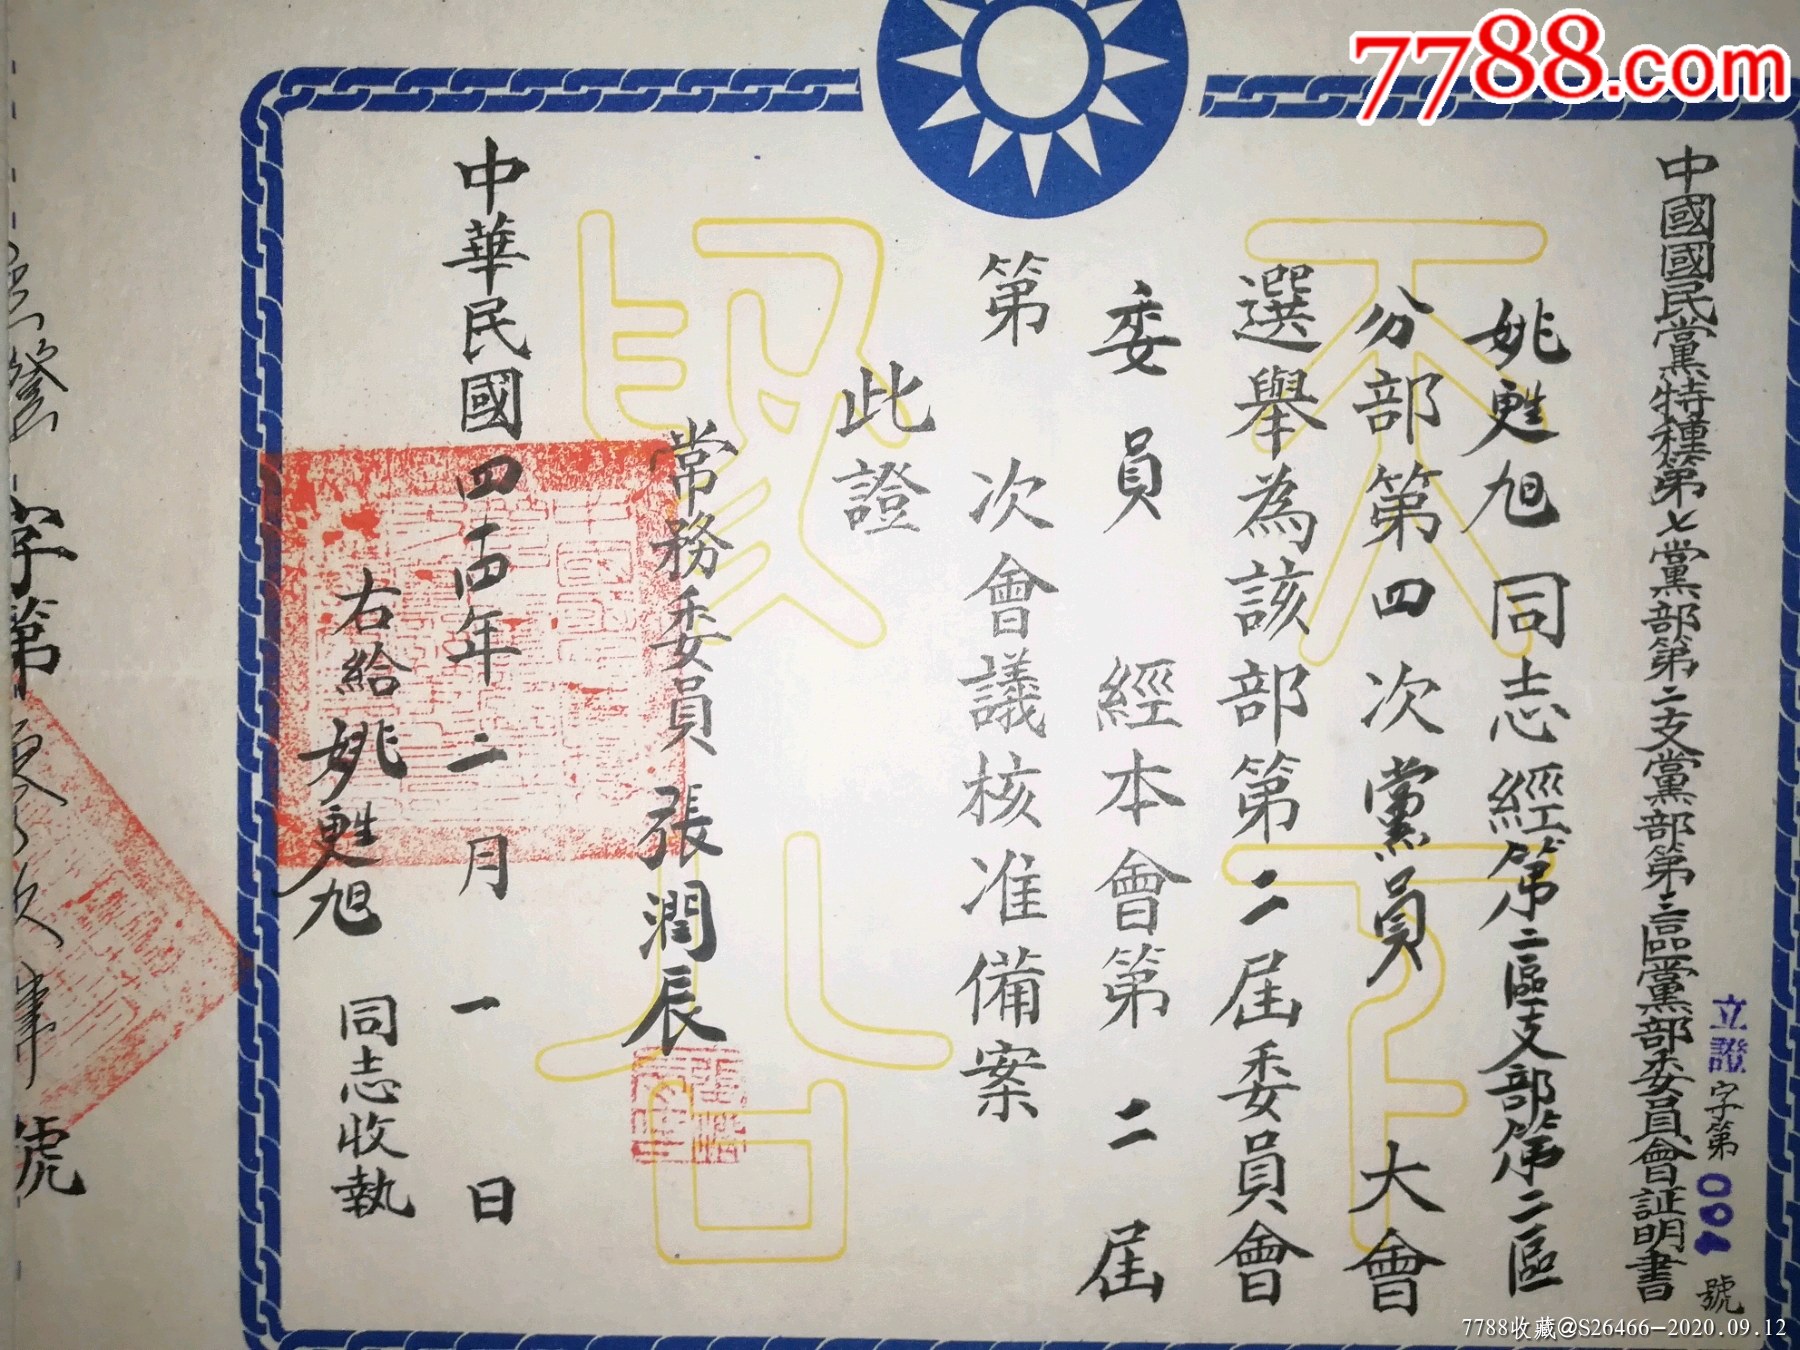 7788.com
中國國民黨特種第七黨部第二支黨部第三區黨部委員會証明書
立證字第004號
姚甦旭同志經第二區支部第二區
分部第四次黨員大會
選舉為該部第二屆委員會
委員經本會第二屆
第次會議核准備案
此證
常務委員張潤辰
中華民國四十四年二月一日
右給姚甦旭同志收執
天下為公
字第
號
7788收藏@S26466-2020.09.12